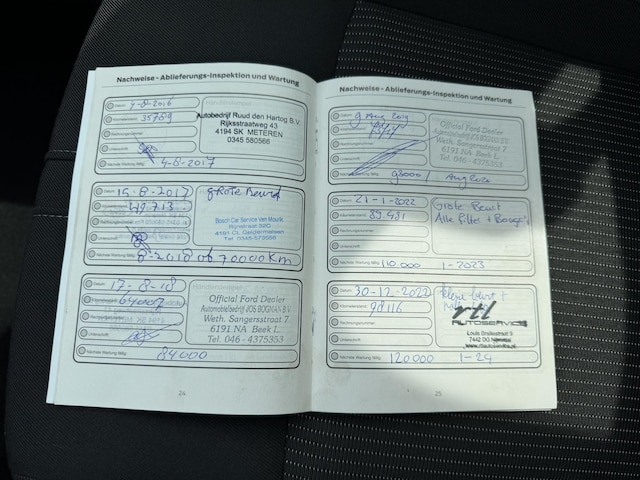 Nachweise - Ablieferungs-Inspektion und Wartung
Datum 4-8-2016
Kilometerstand 35789
Rechnungsnummer
Unterschrift
Nächste Wartung fällig 4-8-2017
Autobedrijf Ruud den Hartog B.V.
Rijksstraatweg 43
4194 SK METEREN
0345 580566
Datum 15-8-2017
Kilometerstand 49.713
Rechnungsnummer
Unterschrift
Nächste Wartung fällig 8-2018 of 70000 km
grote beurt
Bosch Car Service Van Mourik
Rijnstraat 52C
4191 CL Geldermalsen
Tel 0345-573556
Datum 17-8-18
Kilometerstand 64007
Rechnungsnummer
Unterschrift
Nächste Wartung fällig 84000
Official Ford Dealer
Automobielbedrijf JOS BOGMAN B.V.
Weth. Sangersstraat 7
6191 NA Beek L.
Tel. 046 - 4375353
24
Nachweise - Ablieferungs-Inspektion und Wartung
Datum 9 Aug 2019
Kilometerstand
Rechnungsnummer
Unterschrift
Nächste Wartung fällig 93000 / Aug 2020
Official Ford Dealer
Automobielbedrijf JOS BOGMAN B.V.
Weth. Sangersstraat 7
6191 NA Beek L.
Tel. 046 - 4375353
Datum 27-1-2022
Kilometerstand 89.981
Rechnungsnummer
Unterschrift
Nächste Wartung fällig 110000 1-2023
Grote Beurt
Alle filter + Bougie's
Datum 30-12-2022
Kilometerstand 98116
Rechnungsnummer
Unterschrift
Nächste Wartung fällig 120000 1-24
kleine beurt +
rtl
AUTOSERVICE
Louis Braillestraat 9
7442 DG Nijverdal
www.rtlautoservice.nl
25